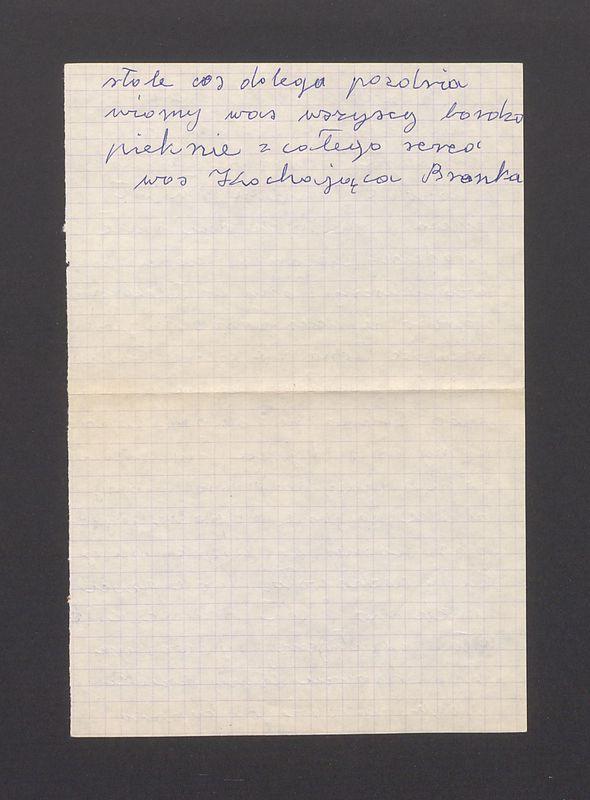 stale cos dolega pozdria
wiomy was wszyscy bardzo
pieknie z całego serca
was Kochająca Bronka